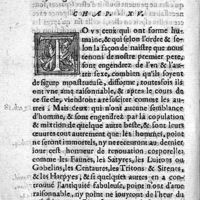 CHAP. XV.
TOVS ceux qui ont forme hu-
maine, & qui selon l'ordre & se-
lon la façon de naistre que nous
tenons de nostre premier pere,
sont engendrés de l'un & l'au-
tre sexe, combien qu'ils soyent
de figure monstrueuse, difforme, toutesfois ils
ont vne ame raisonnable, & apres le cours de
ce siecle, viendront à resusciter comme les au-
tres: Mais ceux qui n'ont aucune semblance
d'homme, & sont engendrés par la copulation
& mixtion de quelque autre beste, & sont leurs
creux autrement que les hommes, point
ne seront immortels, ny ne receuront au der-
nier iour cest honneur de renouation corporelle
comme les Faunes, les Satyres, les Luitons ou
Gobelins, les Centaures, les Tritons & Sirenes,
& les Harpyes, & si quelques autres en a con-
trouué l'antiquité fabuleuse, point n'ont d'ame
raisonnable, ny point ne iouyront de l'heur du